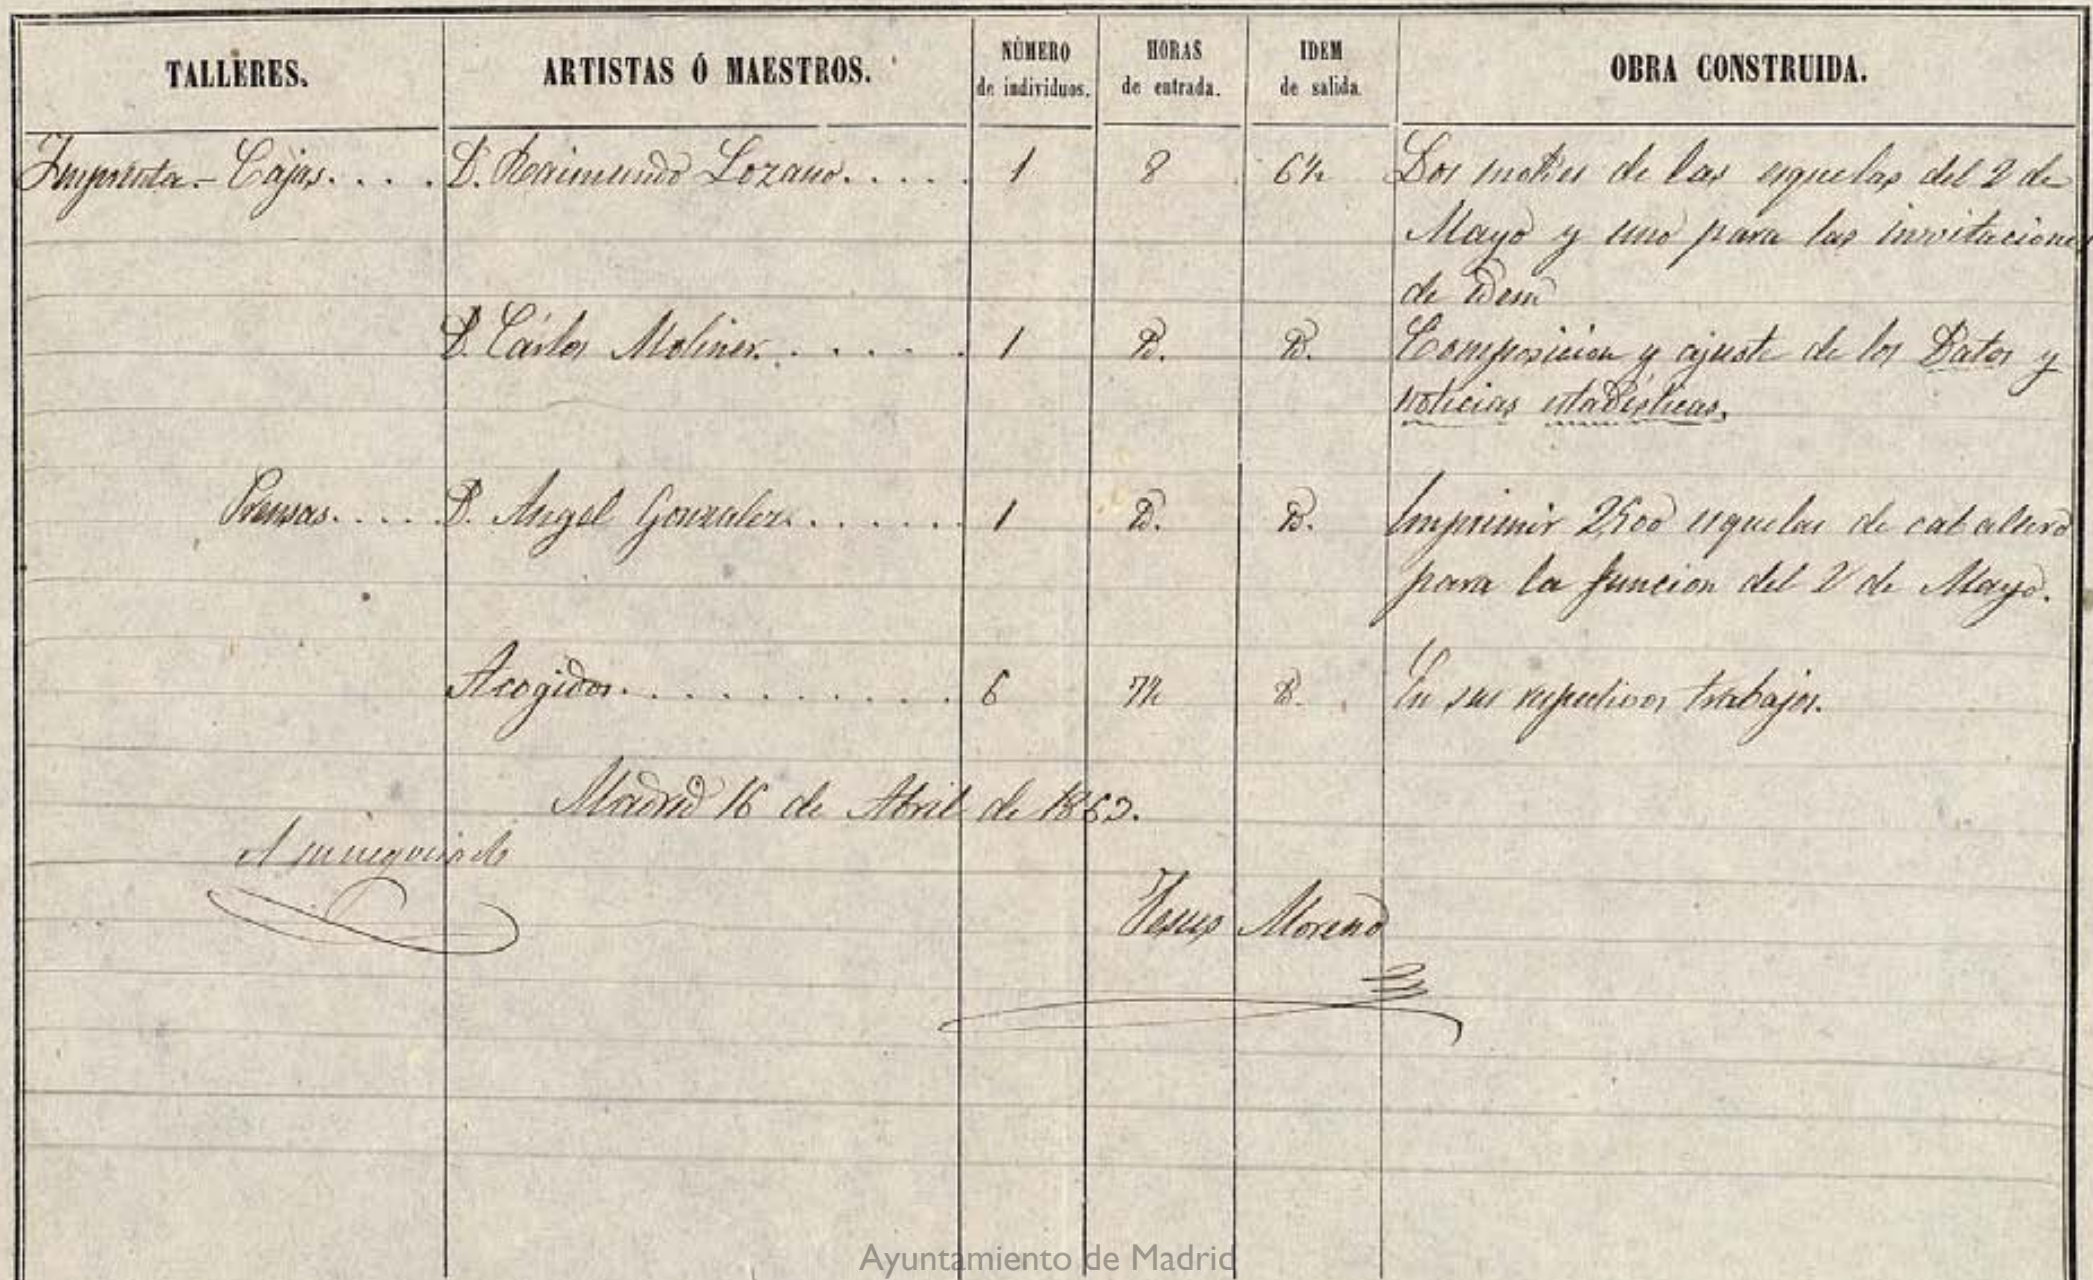 TALLERES. ARTISTAS Ó MAESTROS. NÚMERO de individuos. HORAS de entrada. IDEM de salida. OBRA CONSTRUIDA.
Imprenta.- Cajas. . . . D. Raimundo Lozano. . . . . 1 8 6½ Dos moldes de las esquelas del 2 de
Mayo y uno para las invitaciones
de idem
D. Cárlos Moliner. . . . . . 1 D. D. Composicion y ajuste de los Datos y
noticias estadísticas.
Prensas. . . . D. Angel Gonzalez. . . . . . 1 D. D. Imprimir 2,500 esquelas de caballero
para la funcion del 2 de Mayo.
Acogidos. . . . . . . . . . 6 7½ D. En sus respectivos trabajos.
Madrid 16 de Abril de 1863.
Jesus Moreno
Ayuntamiento de Madrid